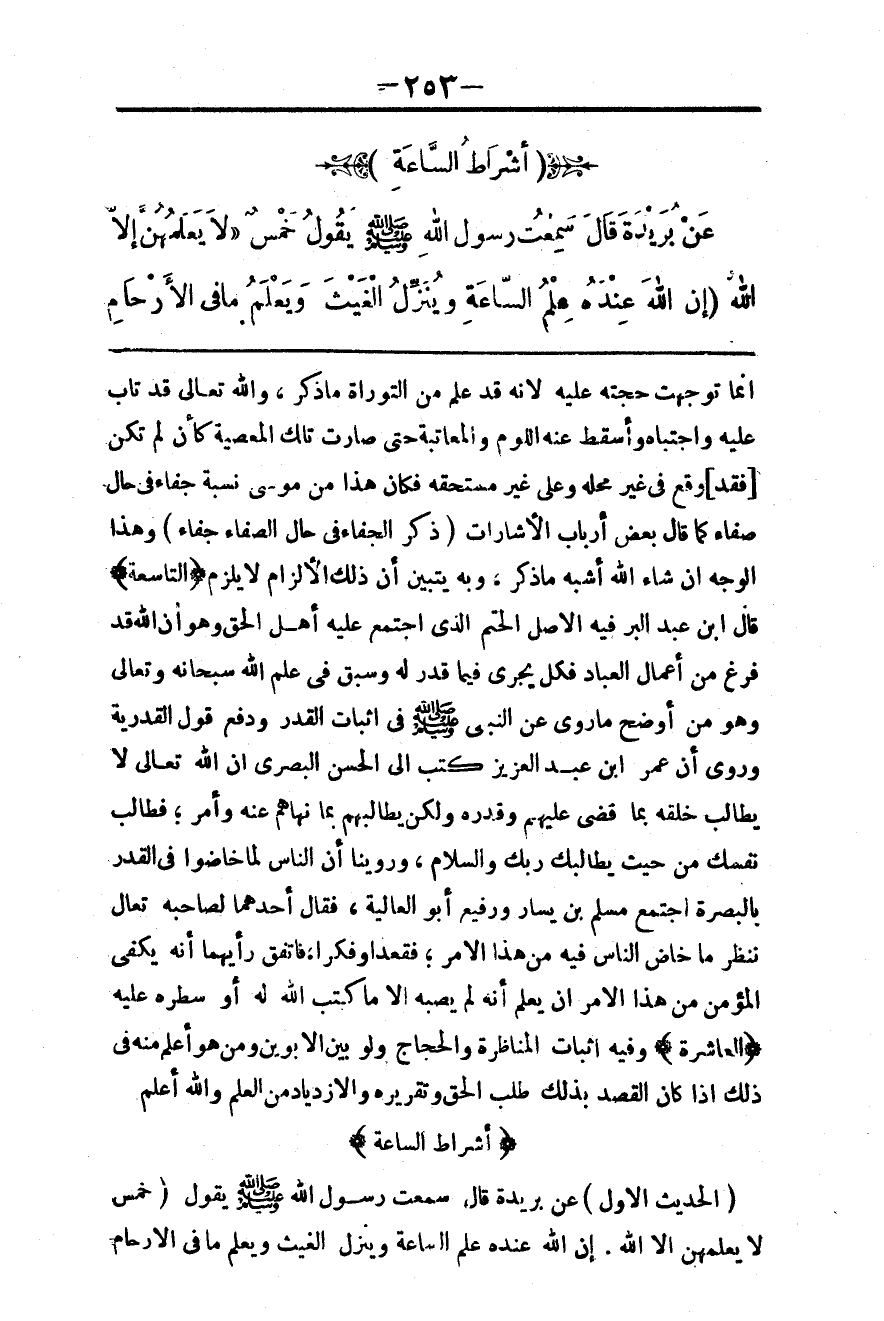 -٢٥٣-
( أَشْرَاطُ السَّاعَةِ )
عَنْ بُرَيْدَةَ قَالَ سَمِعْتُ رسول اللهِ ﷺ يَقُولُ خَمْسٌ «لاَ يَعْلَمُهُنَّ إلاّ
اللهُ (إن اللهَ عِنْدَهُ عِلْمُ السّاعَةِ ويُنَزِّلُ الْغَيْثَ وَيَعْلَمُ مافى الأَرْحامِ
انما توجهت حجته عليه لانه قد علم من التوراة ماذكر ، والله تعالى قد تاب
عليه واجتباه وأسقط عنه اللوم والمعاتبة حتى صارت تلك المعصية كأن لم تكن
[فقد] وقع فى غير محله وعلى غير مستحقه فكان هذا من موسى نسبة جفاء فى حال
صفاء كما قال بعض أرباب الأشارات ( ذكر الجفاء فى حال الصفاء جفاء ) وهذا
الوجه ان شاء الله أشبه ماذكر ، وبه يتبين أن ذلك الألزام لايلزم ﴿التاسعة﴾
قال ابن عبد البر فيه الاصل الحتم الذى اجتمع عليه أهل الحق وهو أن الله قد
فرغ من أعمال العباد فكل يجرى فيما قدر له وسبق فى علم الله سبحانه وتعالى
وهو من أوضح ماروى عن النبى ﷺ فى اثبات القدر ودفع قول القدرية
وروى أن عمر ابن عبد العزيز كتب الى الحسن البصرى ان الله تعالى لا
يطالب خلقه بما قضى عليهم وقدره ولكن يطالبهم بما نهاهم عنه وأمر ؛ فطالب
نفسك من حيث يطالبك ربك والسلام ، وروينا أن الناس لما خاضوا فى القدر
بالبصرة اجتمع مسلم بن يسار ورفيع أبو العالية ، فقال أحدهما لصاحبه تعال
ننظر ما خاض الناس فيه من هذا الامر ؛ فقعدا وفكرا ، فاتفق رأيهما أنه يكفى
المؤمن من هذا الامر ان يعلم أنه لم يصبه الا ما كتب الله له أو سطره عليه
﴿العاشرة﴾ وفيه اثبات المناظرة والحجاج ولو بين الابوين ومن هو أعلم منه فى
ذلك اذا كان القصد بذلك طلب الحق وتقريره والازدياد من العلم والله أعلم
﴿ أشراط الساعة ﴾
( الحديث الاول ) عن بريدة قال سمعت رسول الله ﷺ يقول ( خمس
لا يعلمهن الا الله . إن الله عنده علم الساعة وينزل الغيث ويعلم ما فى الارحام